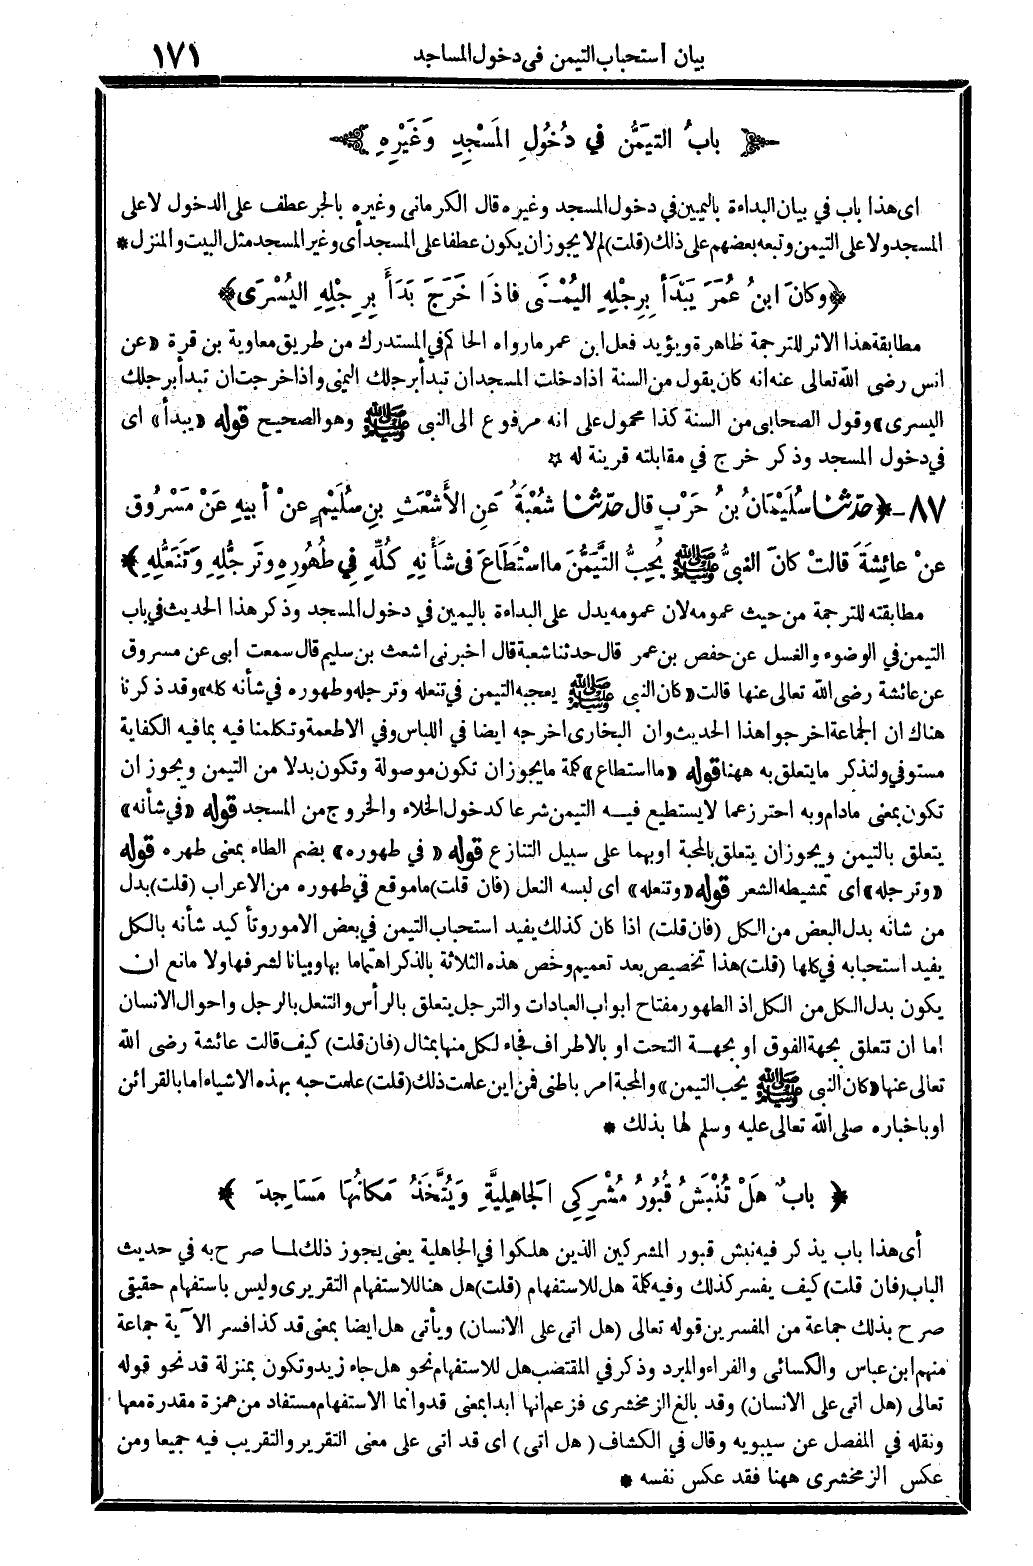 بيان استحباب التيمن في دخول المساجد ١٧١
باب التيمن في دخول المسجد وغيره
اى هذا باب في بيان البداءة باليمين في دخول المسجد وغيره قال الكرماني وغيره بالجر عطف على الدخول لا على
المسجد ولا على التيمن وتبعه بعضهم على ذلك (قلت) لم لا يجوز ان يكون عطفا على المسجد أى وغير المسجد مثل البيت والمنزل *
﴿وكَانَ ابنُ عُمَرَ يَبْدَأُ بِرِجْلِهِ اليُمْنَى فاذَا خَرَجَ بَدَأَ بِرِجْلِهِ اليُسْرَى﴾
مطابقة هذا الاثر للترجمة ظاهرة ويؤيد فعل ابن عمر مارواه الحاكم في المستدرك من طريق معاوية بن قرة «عن
انس رضى الله تعالى عنه انه كان يقول من السنة اذا دخلت المسجد ان تبدأ برجلك اليمنى واذا خرجت ان تبدأ برجلك
اليسرى» وقول الصحابى من السنة كذا محمول على انه مرفوع الى النبى ﷺ وهو الصحيح قوله «يبدأ» اى
في دخول المسجد وذكر خرج في مقابلته قرينة له ☆
٨٧ - ﴿حدّثنا سُلَيْمَانُ بنُ حَرْبٍ قال حدّثنا شُعْبَةُ عَنِ الأَشْعَثِ بنِ سُلَيْمٍ عنْ أبيهِ عَنْ مَسْرُوقٍ
عنْ عائِشَةَ قالتْ كانَ النبىُّ ﷺ يُحِبُّ التَّيَمُّنَ مااسْتَطَاعَ فى شَأْنِهِ كُلِّهِ فِي طُهُورِهِ وتَرَجُّلِهِ وَتَنَعُّلِهِ﴾
مطابقته للترجمة من حيث عمومه لان عمومه يدل على البداءة باليمين في دخول المسجد وذكر هذا الحديث في باب
التيمن في الوضوء والغسل عن حفص بن عمر قال حدثنا شعبة قال اخبرنى اشعث بن سليم قال سمعت ابى عن مسروق
عن عائشة رضى الله تعالى عنها قالت «كان النبى ﷺ يعجبه التيمن في تنعله وترجله وطهوره في شأنه كله» وقد ذكرنا
هناك ان الجماعة اخرجوا هذا الحديث وان البخارى اخرجه ايضا في اللباس وفي الاطعمة وتكلمنا فيه بما فيه الكفاية
مستوفي ولنذكر ما يتعلق به ههنا قوله «ما استطاع» كلمة ما يجوز ان تكون موصولة وتكون بدلا من التيمن ويجوز ان
تكون بمعنى مادام وبه احترز عما لا يستطيع فيه التيمن شرعا كدخول الخلاء والخروج من المسجد قوله «في شأنه»
يتعلق بالتيمن ويجوز ان يتعلق بالمحبة او بهما على سبيل التنازع قوله «في طهوره» بضم الطاء بمعنى طهره قوله
«وترجله» اى تمشيطه الشعر قوله «وتنعله» اى لبسه النعل (فان قلت) ما موقع في طهوره من الاعراب (قلت) بدل
من شانه بدل البعض من الكل (فان قلت) اذا كان كذلك يفيد استحباب التيمن في بعض الامور وتأكيد شأنه بالكل
يفيد استحبابه في كلها (قلت) هذا تخصيص بعد تعميم وخص هذه الثلاثة بالذكر اهتماما بها وبيانا لشرفها ولا مانع ان
يكون بدل الكل من الكل اذ الطهور مفتاح ابواب العبادات والترجل يتعلق بالرأس والتنعل بالرجل واحوال الانسان
اما ان تتعلق بجهة الفوق او بجهة التحت او بالاطراف فجاء لكل منها بمثال (فان قلت) كيف قالت عائشة رضى الله
تعالى عنها «كان النبى ﷺ يحب التيمن» والمحبة امر باطنى فمن اين علمت ذلك (قلت) علمت حبه بهذه الاشياء اما بالقرائن
او باخباره صلى الله تعالى عليه وسلم لها بذلك *
﴿ بابٌ هَلْ تُنْبَشُ قُبُورُ مُشْرِكِى الجَاهِلِيَّةِ وَيُتَّخَذُ مَكانُهَا مَسَاجِدَ ﴾
أى هذا باب يذكر فيه نبش قبور المشركين الذين هلكوا في الجاهلية يعنى يجوز ذلك لما صرح به في حديث
الباب (فان قلت) كيف يفسر كذلك وفيه كلمة هل للاستفهام (قلت) هل هنا للاستفهام التقريرى وليس باستفهام حقيقى
صرح بذلك جماعة من المفسرين قوله تعالى (هل اتى على الانسان) ويأتى هل ايضا بمعنى قد كذا فسر الآية جماعة
منهم ابن عباس والكسائى والفراء والمبرد وذكر في المقتضب هل للاستفهام نحو هل جاء زيد وتكون بمنزلة قد نحو قوله
تعالى (هل اتى على الانسان) وقد بالغ الزمخشرى فزعم انها ابدا بمعنى قد وانما الاستفهام مستفاد من همزة مقدرة معها
ونقله في المفصل عن سيبويه وقال في الكشاف (هل اتى) اى قد اتى على معنى التقرير والتقريب فيه جميعا ومن
عكس الزمخشرى ههنا فقد عكس نفسه *